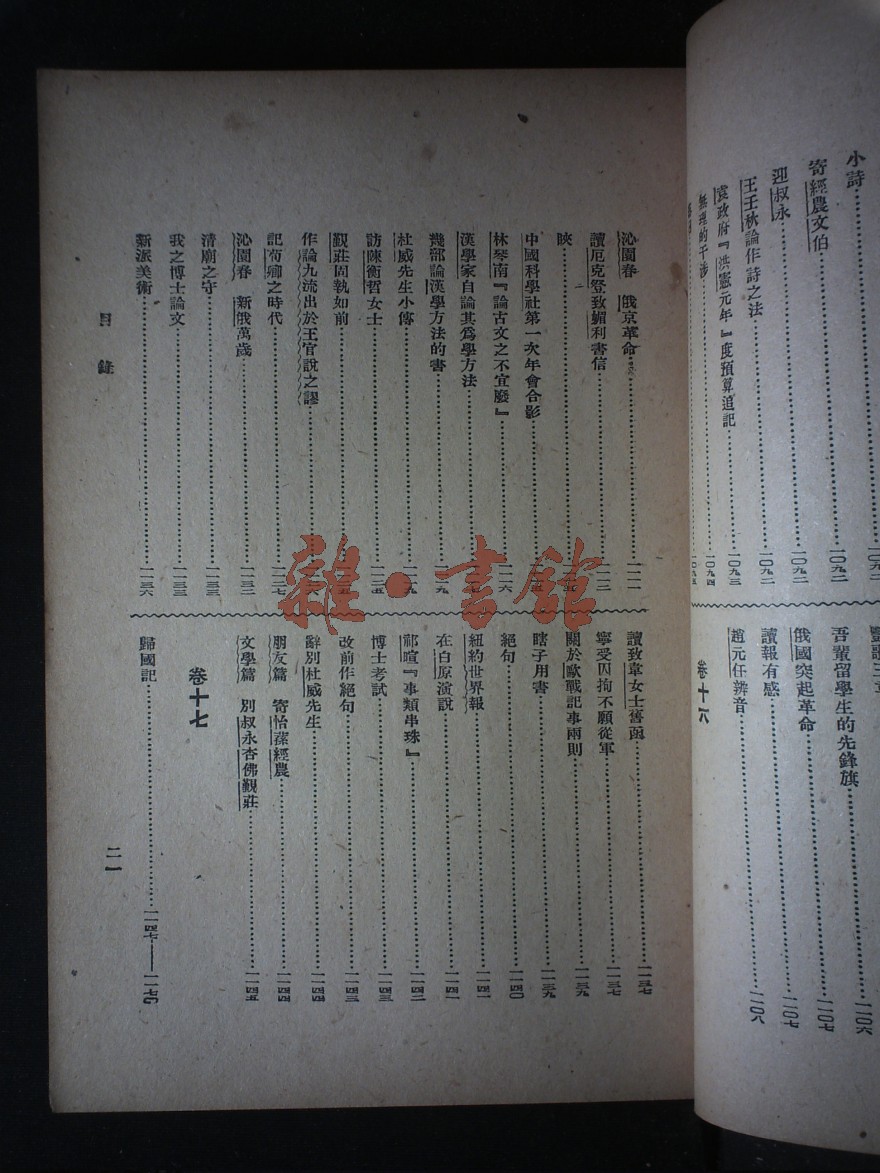 小詩
寄經農文伯 一〇九二
迎叔永 一〇九二
王壬秋論作詩之法 一〇九二
袁政府『洪憲元年』度預算追記 一〇九三
無理的干涉 一〇九四
一〇九五
一一〇六
吾輩留學生的先鋒旗 一一〇七
俄國突起革命 一一〇七
讀報有感
趙元任辨音 一一〇八
卷十六
沁園春 俄京革命 一一一
讀厄克登致媚利書信
中國科學社第一次年會合影
林琴南『論古文之不宜廢』 一一六
漢學家自論其爲學方法
幾部論漢學方法的書
杜威先生小傳
訪陳衡哲女士
覲莊固執如前
作論九流出於王官說之謬
記荀卿之時代
沁園春 新俄萬歲 一一三二
清廟之守 一一三三
我之博士論文 一一三三
新派美術 一一三六
讀致韋女士舊函 一一三七
寧受囚拘不願從軍 一一三七
關於歐戰記事兩則 一一三九
瞎子用書 一一三九
絕句 一一四〇
紐約世界報 一一四一
在白原演說 一一四一
祁暄『事類串珠』 一一四二
博士考試 一一四三
改前作絕句 一一四三
辭別杜威先生 一一四四
朋友篇 寄怡蓀經農 一一四四
文學篇 別叔永杏佛覲莊 一一四五
卷十七
歸國記 一一四七——一一七〇
目錄
二一
雜·書館